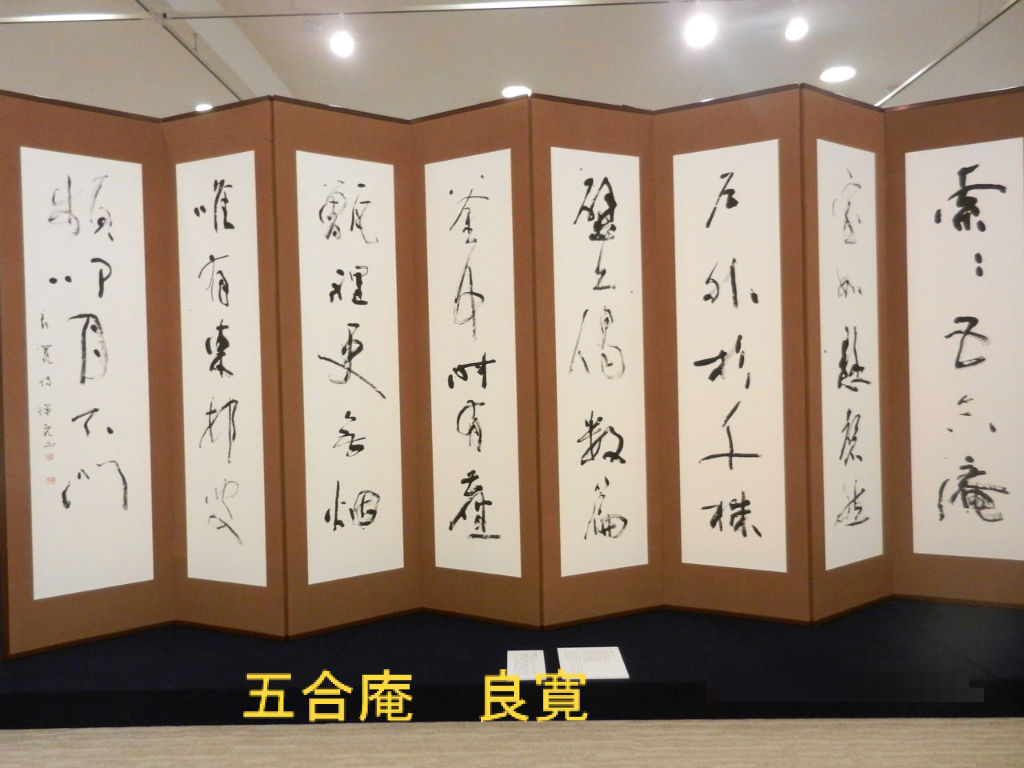 索々五合庵
室如懸磬然
戸外杉千株
壁上偈数篇
釜中時有塵
甑裡更無烟
唯有東村叟
頻叩月下門
良寛詩
五合庵　良寛